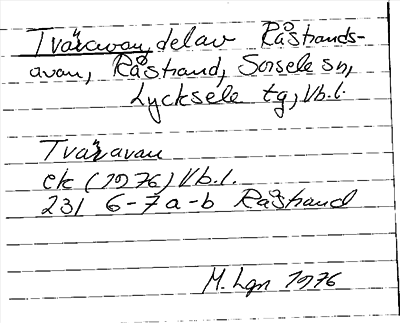 Tväravan, del av Råstrands-
avan, Råstrand, Sorsele sn,
Lycksele tg, Vb.l.
Tväravan
ek (1976) Vb.l.
231 6-7 a-b Råstrand
M. Lgn 1976